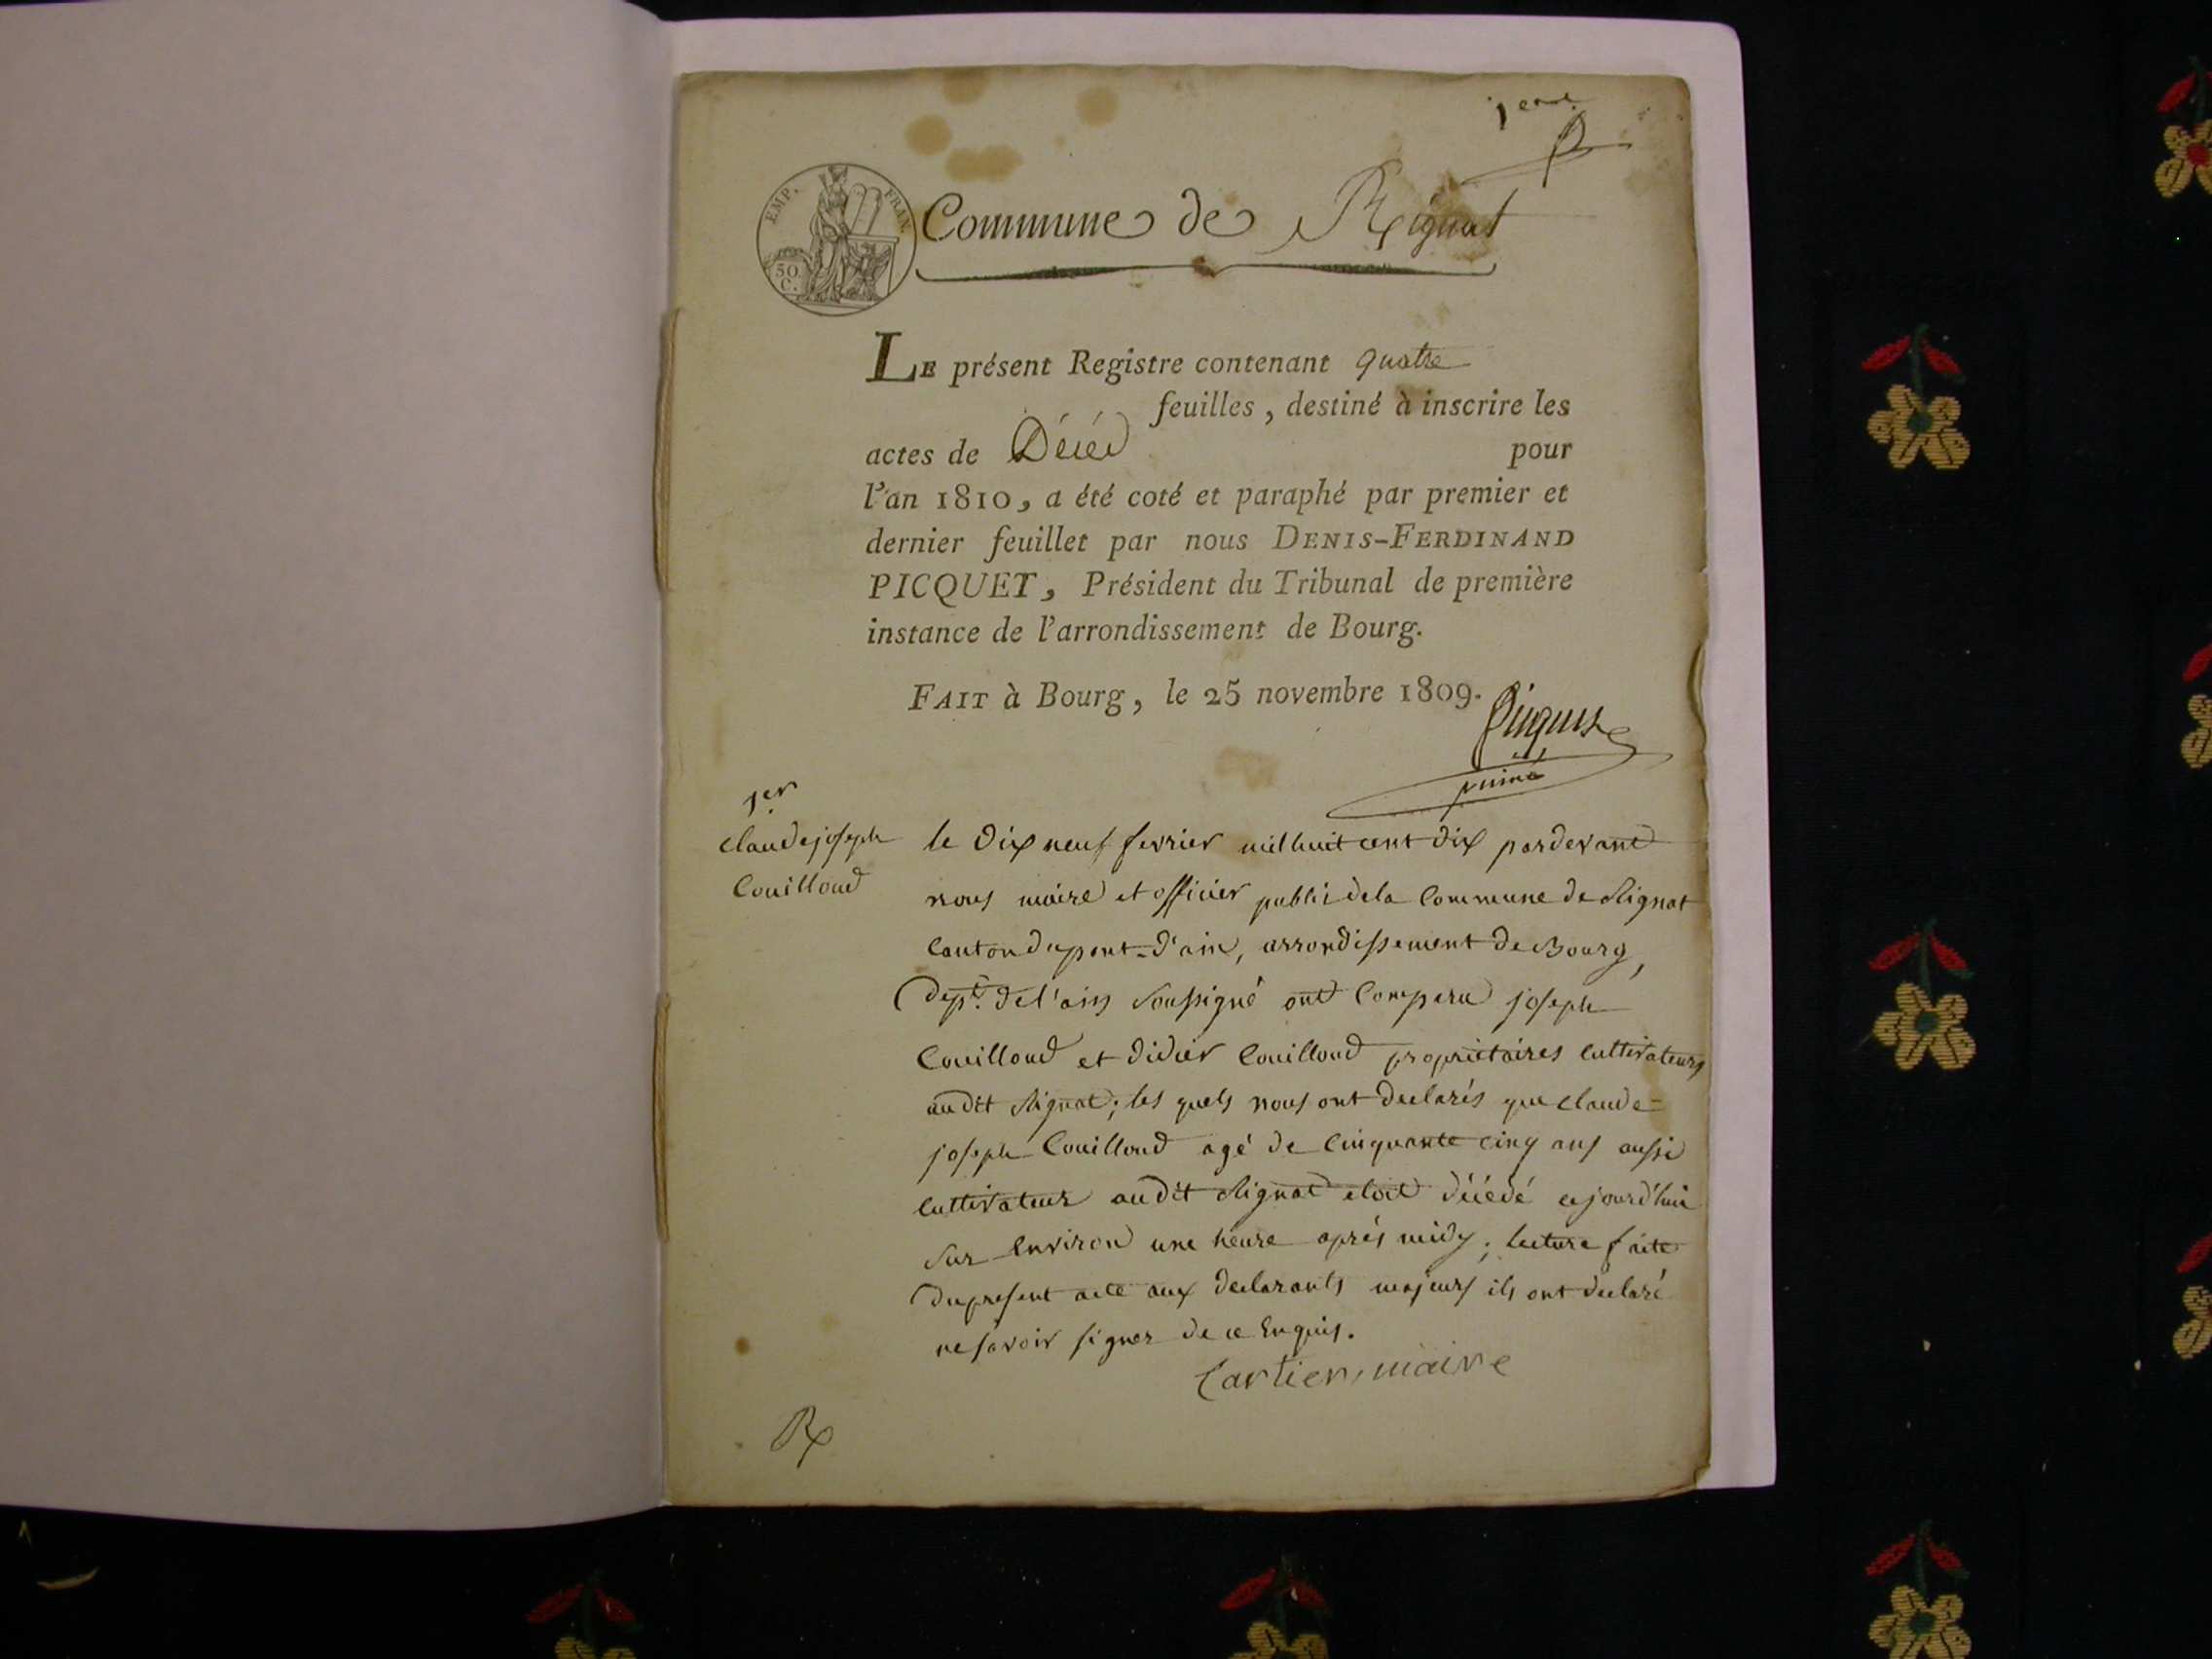 1ere
EMP. FRAN.
50 C.
Commune de Rignat
LE présent Registre contenant quatre
feuilles, destiné à inscrire les
actes de Décès pour
l'an 1810, a été coté et paraphé par premier et
dernier feuillet par nous DENIS-FERDINAND
PICQUET, Président du Tribunal de première
instance de l'arrondissement de Bourg.
FAIT à Bourg, le 25 novembre 1809.
Picquet
1er
claude joseph
Couilloud
le dix neuf fevrier mil huit cent dix pardevant
nous maire et officier public de la Commune de Rignat
Canton du pont-d'ain, arrondissement de Bourg,
Dept. de l'ain Soussigné ont Comparu joseph
Couilloud et didier Couilloud proprietaires Cultivateurs
audit Rignat; les quels nous ont declarés que claude=
joseph Couilloud agé de Cinquante cinq ans aussi
Cultivateur audit Rignat etoit décédé cejourd'hui
Sur Environ une heure après midy; lecture faite
du present acte aux declarants majeurs ils ont déclaré
ne savoir signer de ce Enquis.
Cartier, maire